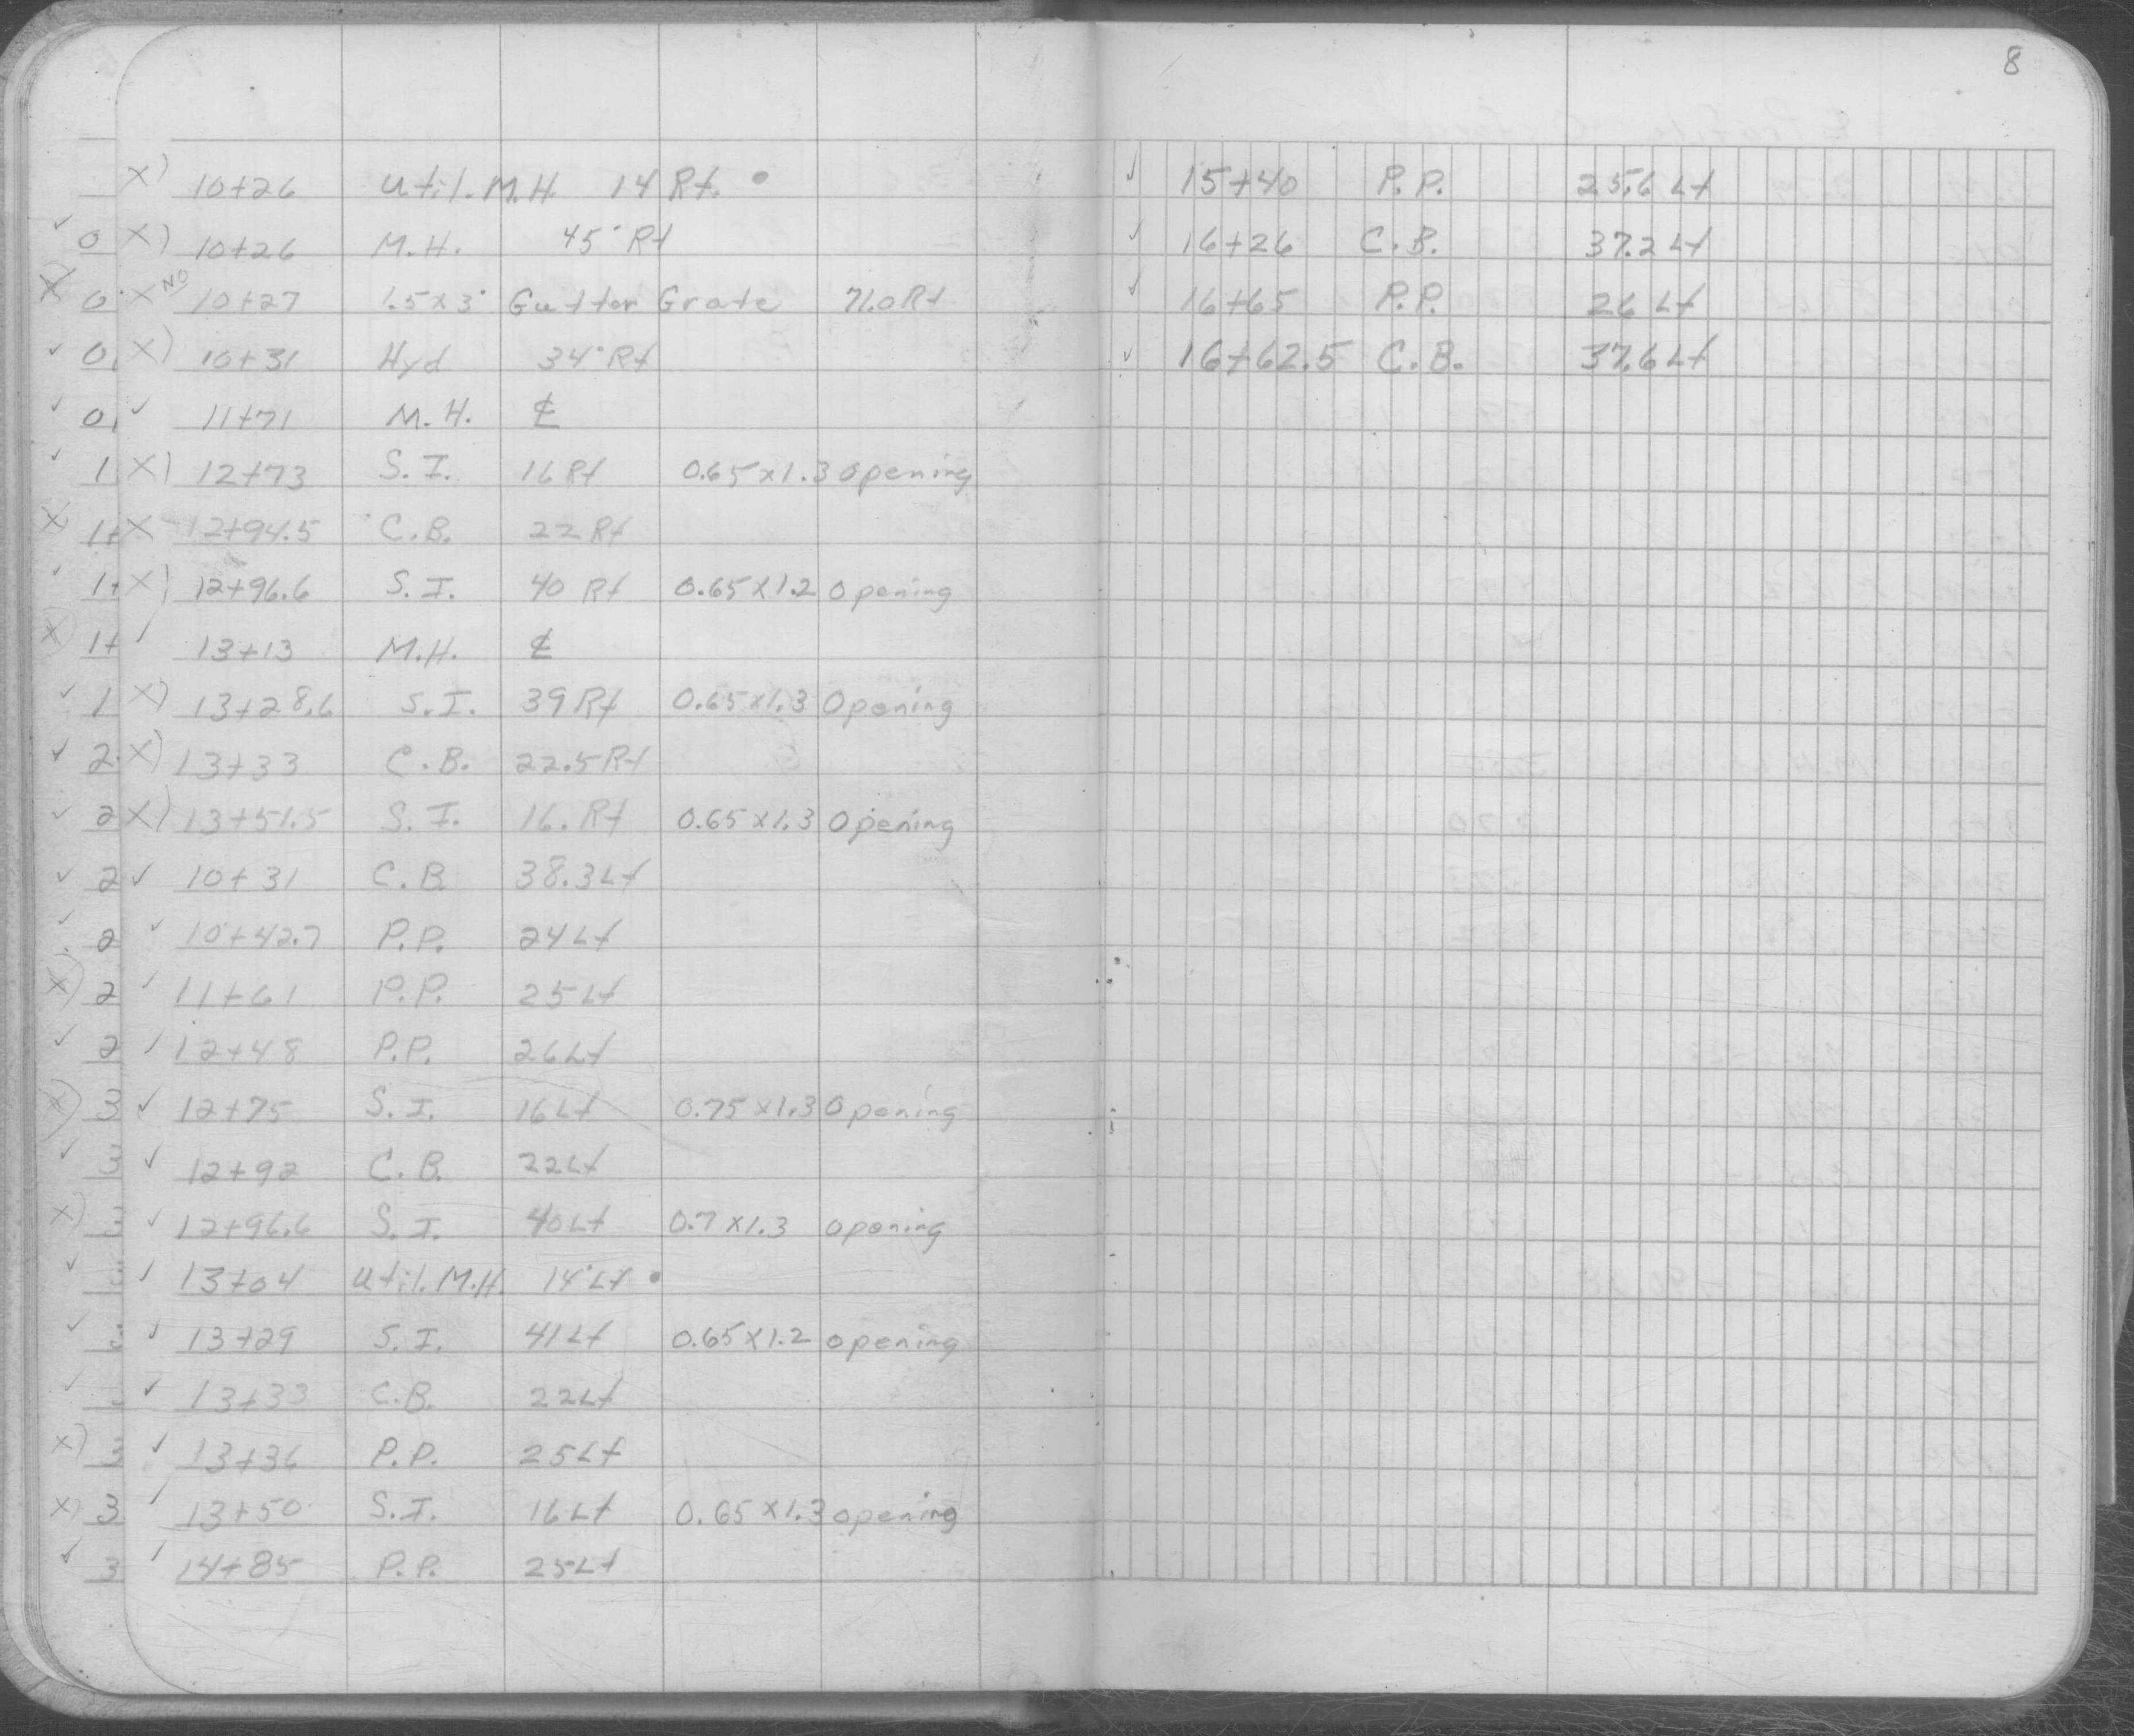 8
X) 10+26 Util. M.H. 14 Rt.
✓ 0 X) 10+26 M.H. 45' Rt
X) 0 X NO 10+27 1.5x3' Gutter Grate 71.0 Rt
✓ 0 X) 10+31 Hyd 34' Rt
✓ 0 ✓ 11+71 M.H. ℄
✓ 1 X) 12+73 S.I. 16 Rt 0.65x1.3 opening
X) 1+ X 12+94.5 C.B. 22 Rt
✓ 1+ X) 12+96.6 S.I. 40 Rt 0.65x1.2 opening
X) 1+ ✓ 13+13 M.H. ℄
✓ 1 X) 13+28.6 S.I. 39 Rt 0.65x1.3 Opening
✓ 2 X) 13+33 C.B. 22.5 Rt
✓ 2 X) 13+51.5 S.I. 16. Rt 0.65x1.3 Opening
✓ 2 ✓ 10+31 C.B. 38.3 Lt
✓ 2 ✓ 10+42.7 P.P. 24 Lt
X) 2 ✓ 11+61 P.P. 25 Lt
✓ 2 ✓ 12+48 P.P. 26 Lt
X) 3 ✓ 12+75 S.I. 16 Lt 0.75x1.3 Opening
✓ 3 ✓ 12+92 C.B. 22 Lt
X) 3 ✓ 12+96.6 S.I. 40 Lt 0.7x1.3 opening
✓ ✓ 13+04 Util. M.H. 14' Lt
✓ ✓ 13+29 S.I. 41 Lt 0.65x1.2 opening
✓ ✓ 13+33 C.B. 22 Lt
X) 3 ✓ 13+36 P.P. 25 Lt
X) 3 ✓ 13+50 S.I. 16 Lt 0.65x1.3 opening
✓ 3 ✓ 14+85 P.P. 25 Lt
✓ 15+40 P.P. 25.6 Lt
✓ 16+26 C.B. 37.2 Lt
✓ 16+65 P.P. 26 Lt
✓ 16+62.5 C.B. 37.6 Lt